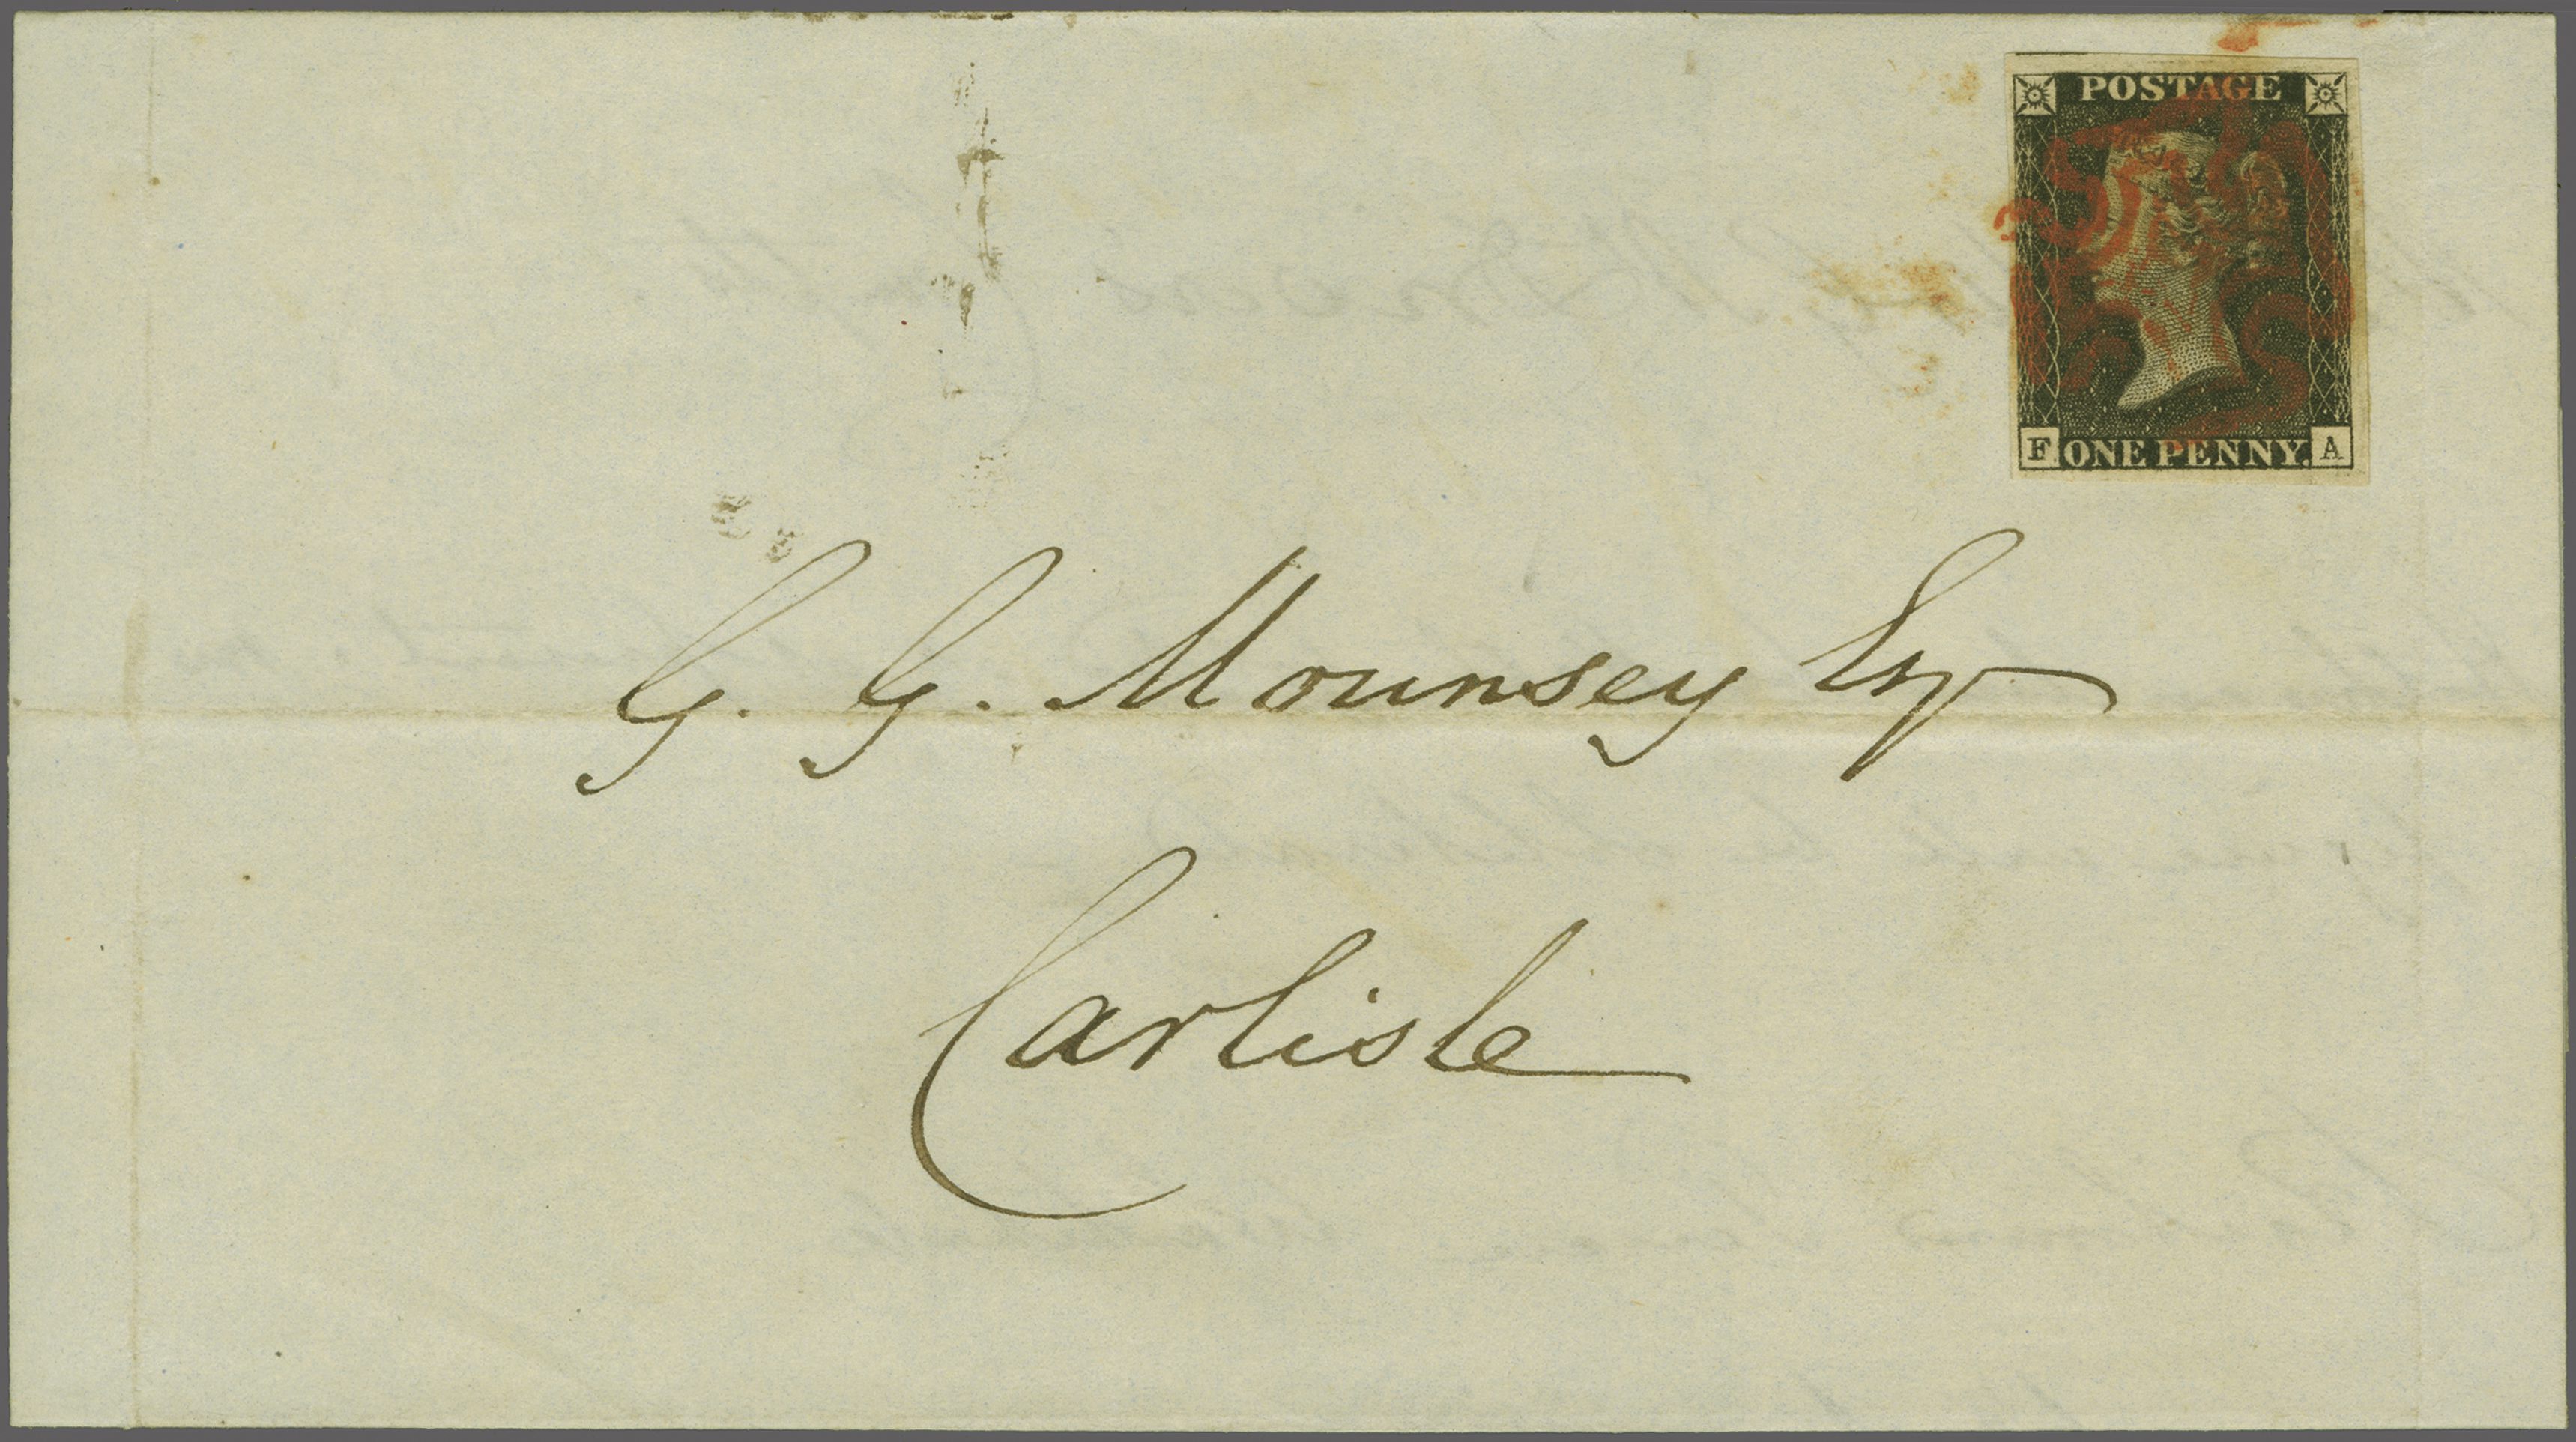 POSTAGE
F ONE PENNY. A
G. G. Mounsey Esq
Carlisle